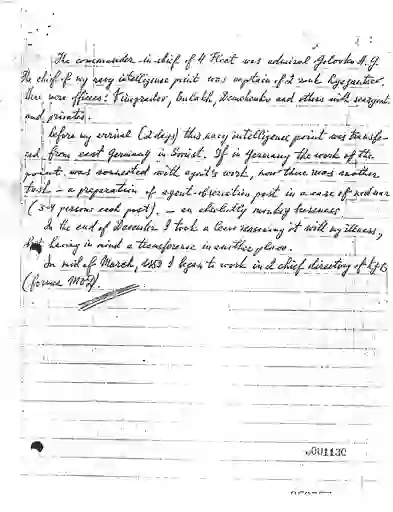 The commander-in-chief of 4 Fleet was admiral Golovko A.G.
The chief of my navy intelligence point was captain of 2 rank
Here were officers: Vinogradov, and others with seargents
and privates.
Before my arrival (2 days) this navy intelligence point was transfe-
red from east Germany in Soviet. If in Germany the work of the
point was connected with agent's work, now there was another
task - a preparation of agent-observation post in a case of
(3-4 persons each post). - an absolutely monkey business.
In the end of December I took a leave reasoning it with my illness,
but having in mind a transference in another place.
In mid of March, 1953 I began to work in 2 chief directory of
(former
001130